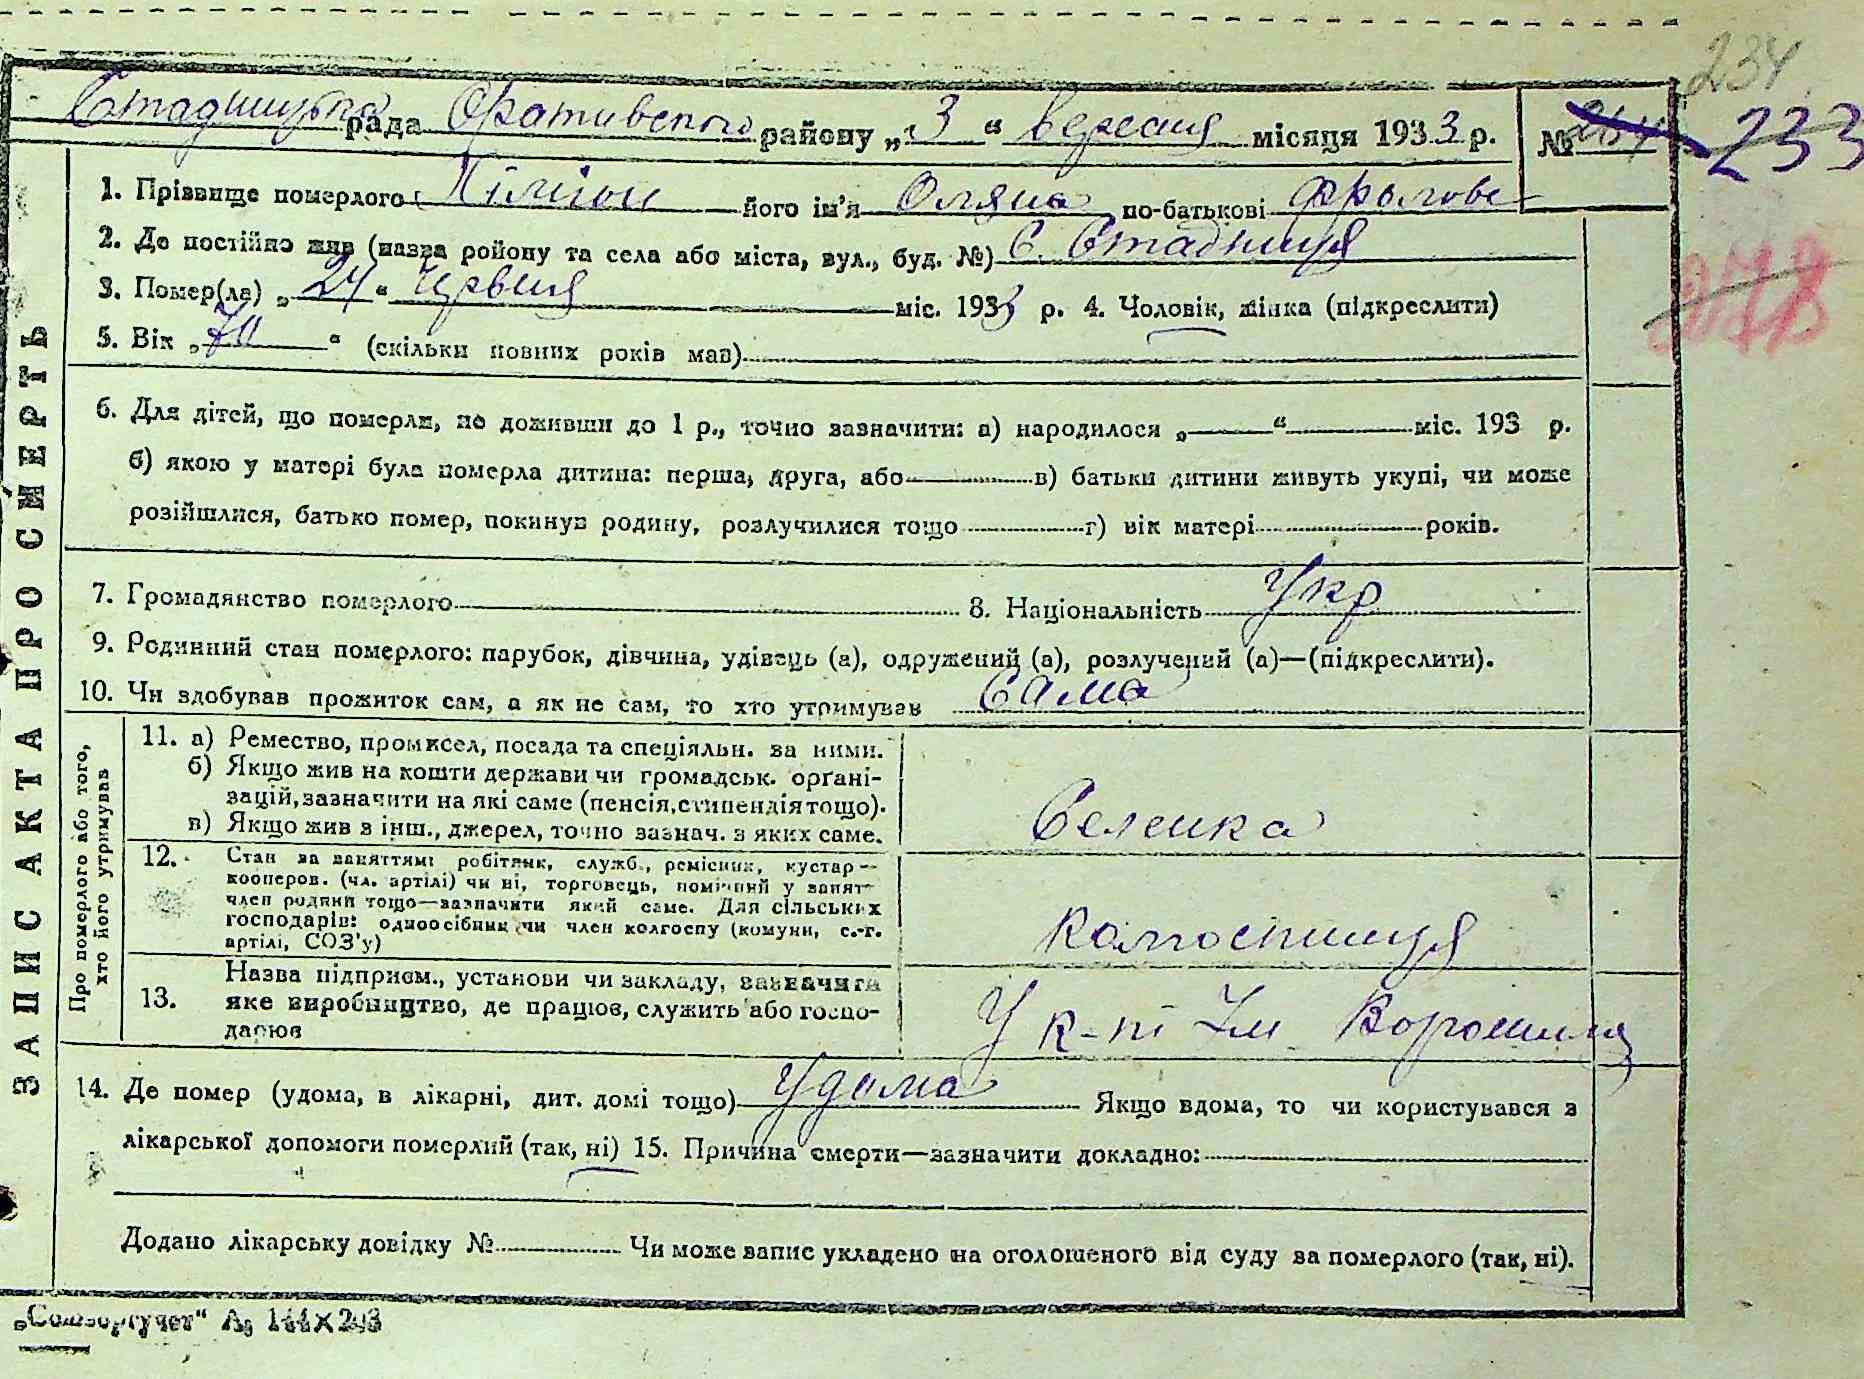 234
Стадницька рада Оративского району „3“ вересня місяця 1933 р. № 233
1. Прізвище померлого його ім'я Оляна по-батькові Фролове
278
2. Де постійно жив (назва ройону та села або міста, вул., буд. №) С. Стадниця
3. Помер(ла) „24“ Червня міс. 1933 р. 4. Чоловік, жінка (підкреслити)
5. Вік „70“ (скільки повних років мав)
6. Для дітей, що померли, не доживши до 1 р., точно зазначити: а) народилося „ “ міс. 193 р.
б) якою у матері була померла дитина: перша, друга, або в) батьки дитини живуть укупі, чи може
розійшлися, батько помер, покинув родину, розлучилися тощо г) вік матері років.
7. Громадянство померлого 8. Національність Укр
9. Родинний стан померлого: парубок, дівчина, удівець (а), одружений (а), розлучений (а)—(підкреслити).
10. Чи здобував прожиток сам, а як не сам, то хто утримував Сама
ЗАПИС АКТА ПРО СМЕРТЬ
Про померлого або того, хто його утримував
11. а) Ремество, промисел, посада та спеціяльн. за ними.
б) Якщо жив на кошти держави чи громадськ. орґані-
зацій, зазначити на які саме (пенсія, стипендія тощо).
в) Якщо жив з інш., джерел, точно зазнач. з яких саме.
Селенка
12. Стан за заняттям: робітник, служб., ремісник, кустар—
кооперов. (чл. артілі) чи ні, торговець, помічний у занят-
член родини тощо—зазначити який саме. Для сільських
господарів: одноосібник чи член колгоспу (комуни, с.-г.
артілі, СОЗ'у)
Колгоспниця
13. Назва підприєм., установи чи закладу, зазначити
яке виробництво, де працює, служить або госпо-
дарює
У к-пі Ім Ворошила
14. Де помер (удома, в лікарні, дит. домі тощо) Удома Якщо вдома, то чи користувався з
лікарської допомоги померлий (так, ні) 15. Причина смерти—зазначити докладно:
Додано лікарську довідку № Чи може запис укладено на оголошеного від суду за померлого (так, ні).
„Союзоргучет“ А5 144×203